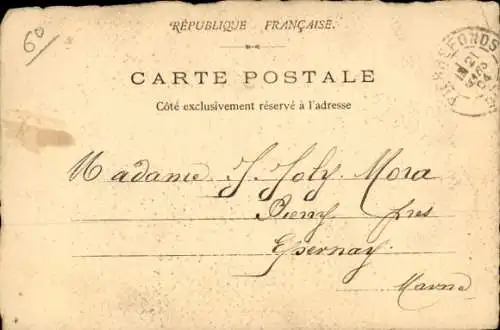 60
RÉPUBLIQUE FRANÇAISE.
CARTE POSTALE
Côté exclusivement réservé à l'adresse
PIERREFONDS
Madame J. Joly Mora
Pierry près
Epernay
Marne